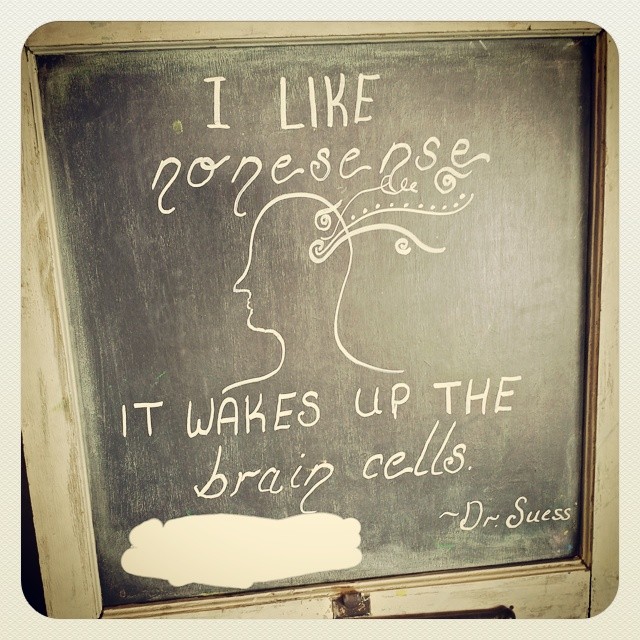 I LIKE
nonesense
IT WAKES UP THE
brain cells.
~Dr. Suess